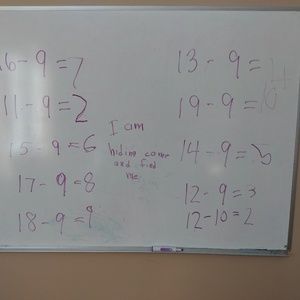 16-9=7
11-9=2
15-9=6
17-9=8
18-9=9
I am
hiding come
and find
me
13-9=4
19-9=10
14-9=5
12-9=3
12-10=2